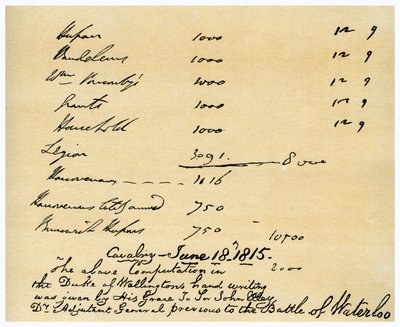 Vivian 1000 12 9
Vandeleurs 1000 12 9
Wm Ponsonby's 1000 12 9
Grants 1000 12 9
Household 1000 12 9
Legion 3091. 8000
Hanoverians 1616
Hanoverians 750
Brunswick Hussars 750
10500
Cavalry - June 18th, 1815.
2000
The above Computation in
the Duke of Wellington's hand writing
was given by His Grace to Sir John Elley
Dy. Adjutant General previous to the Battle of Waterloo